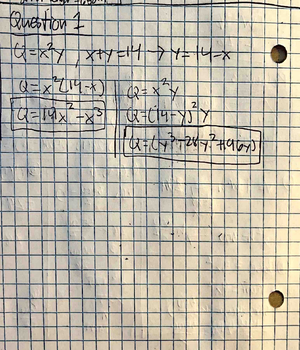 Question 1
Q=x²y , x+y=14 → y=14-x
Q=x²(14-x)
Q=14x²-x³
Q=x²y
Q=(14-y)²y
Q=(y³+28y²+96y)